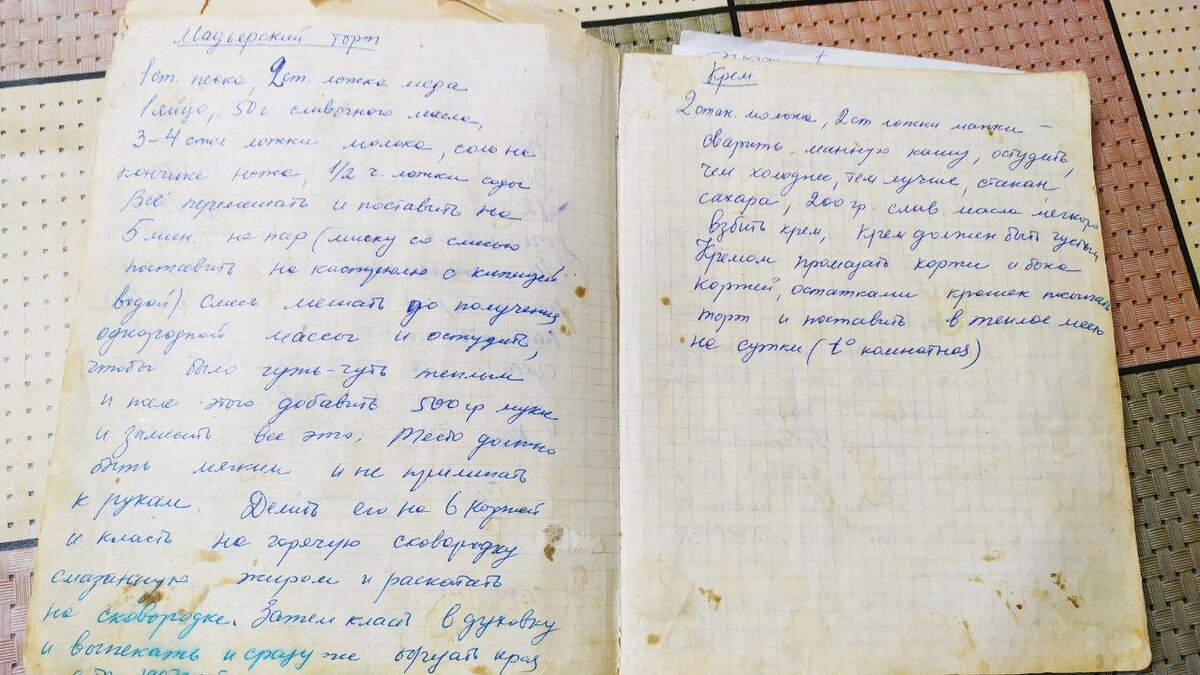 Мадьерский торт
1 ст. песка, 2 ст. ложка меда
1 яйцо, 50 г сливочного масла,
3-4 стол ложки молока, соль на
кончике ножа, 1/2 ч. ложки соды
Всё перемешать и поставить на
5 мин. на пар (миску со смесью
поставить на кастрюлю с кипящей
водой) Смесь мешать до получения
однородной массы и остудить,
чтобы было чуть-чуть теплым
и после этого добавить 500 гр муки
и замесить все это. Тесто должно
быть мягким и не прилипать
к рукам. Делить его на 6 коржей
и класть на горячую сковородку
смазанную жиром и раскатать
на сковородке. Затем класть в духовку
и выпекать и сразу же обрезать края
Крем
2 стак. молока, 2 ст ложки манки –
сварить манную кашу, остудить,
чем холоднее, тем лучше, стакан
сахара, 200 гр. слив. масла мягкого
взбить крем, крем должен быть густым
Кремом промазать коржи и бока
коржей, остатками крошек посыпать
торт и поставить в теплое место
на сутки (t° комнатная)